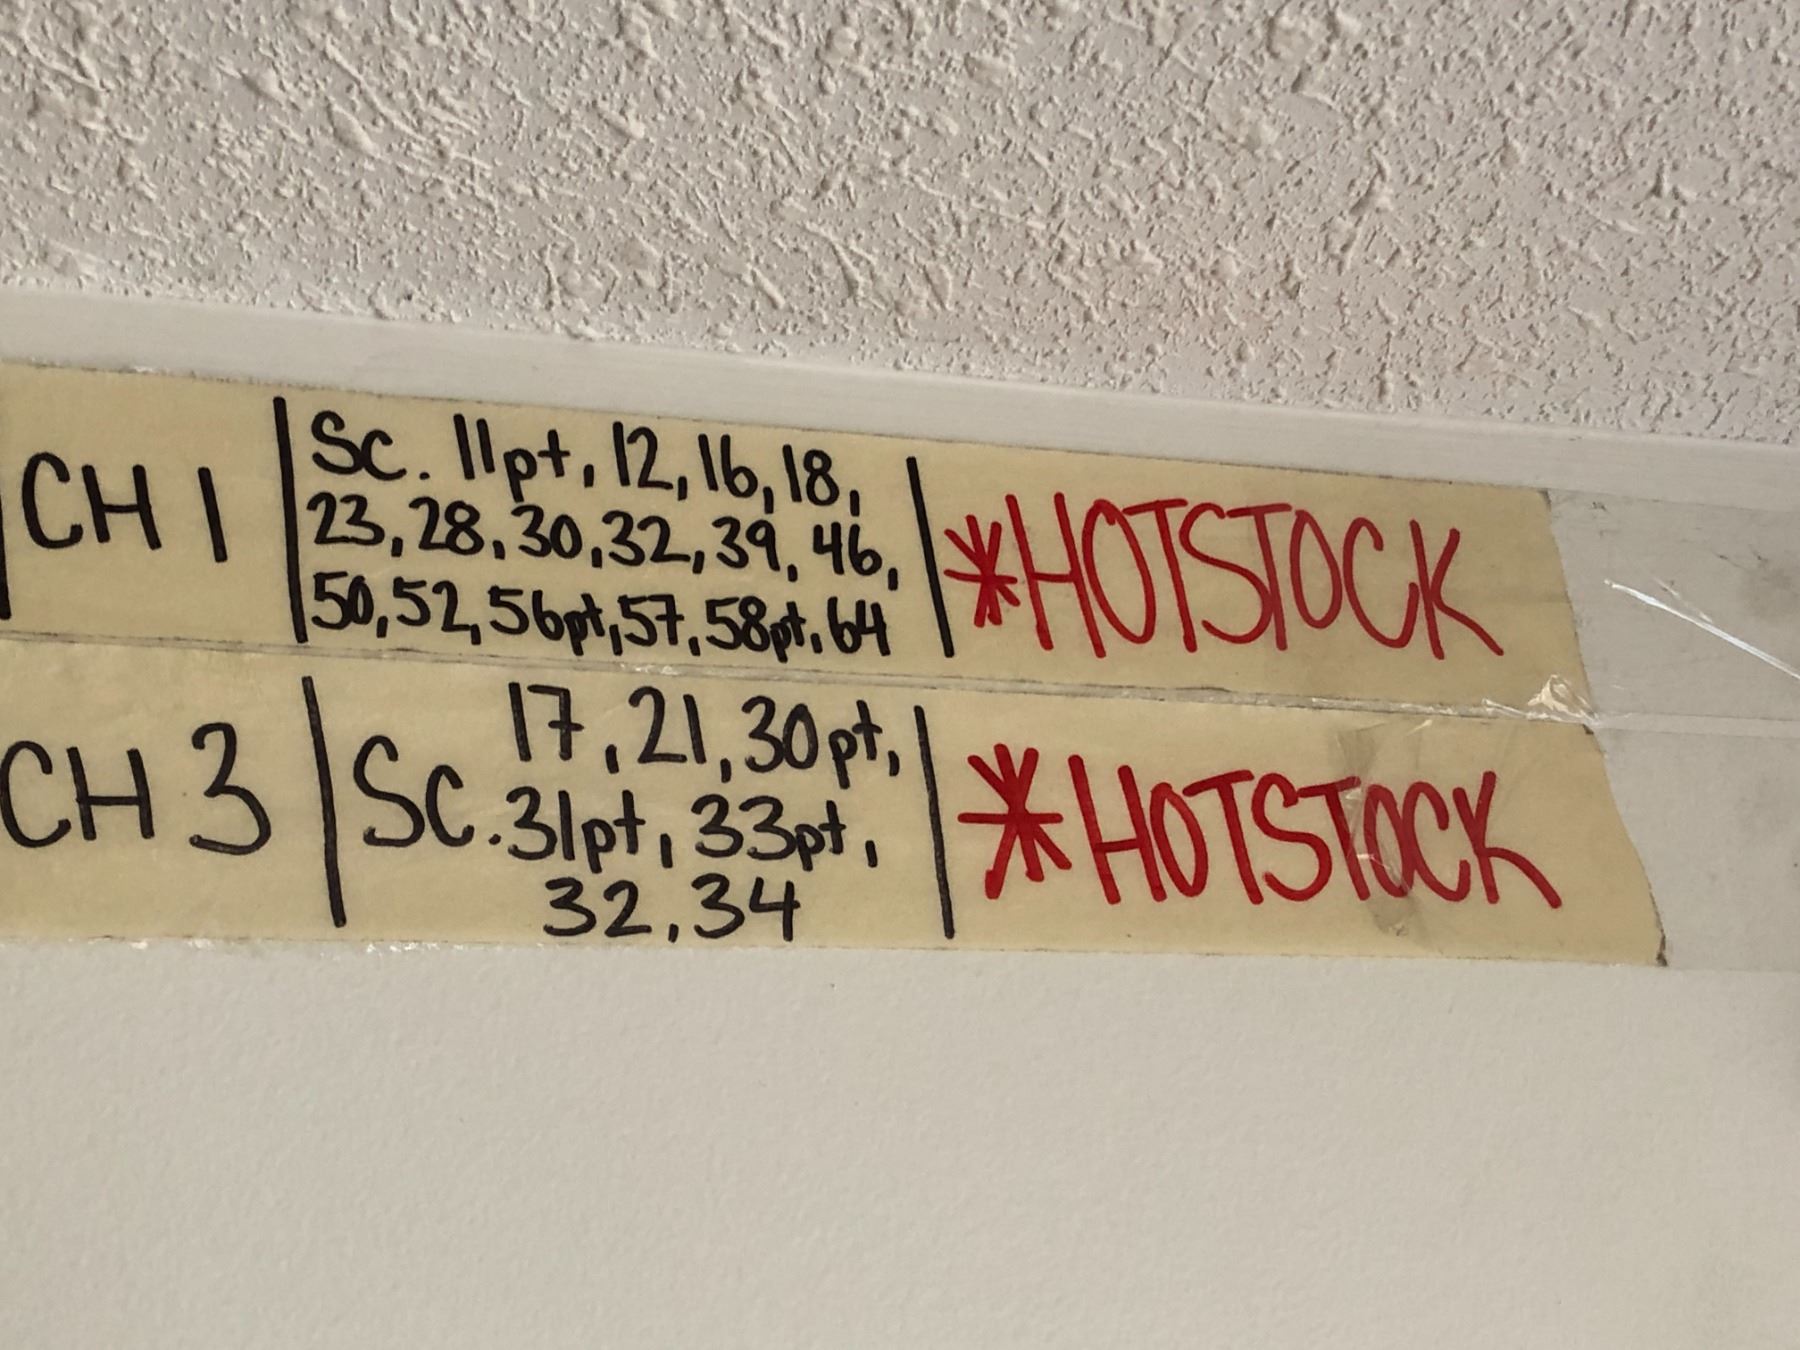 CH 1
Sc. 11pt, 12, 16, 18,
23, 28, 30, 32, 39, 46,
50, 52, 56pt, 57, 58pt, 64
*HOTSTOCK
CH 3
Sc. 17, 21, 30pt,
31pt, 33pt,
32, 34
*HOTSTOCK